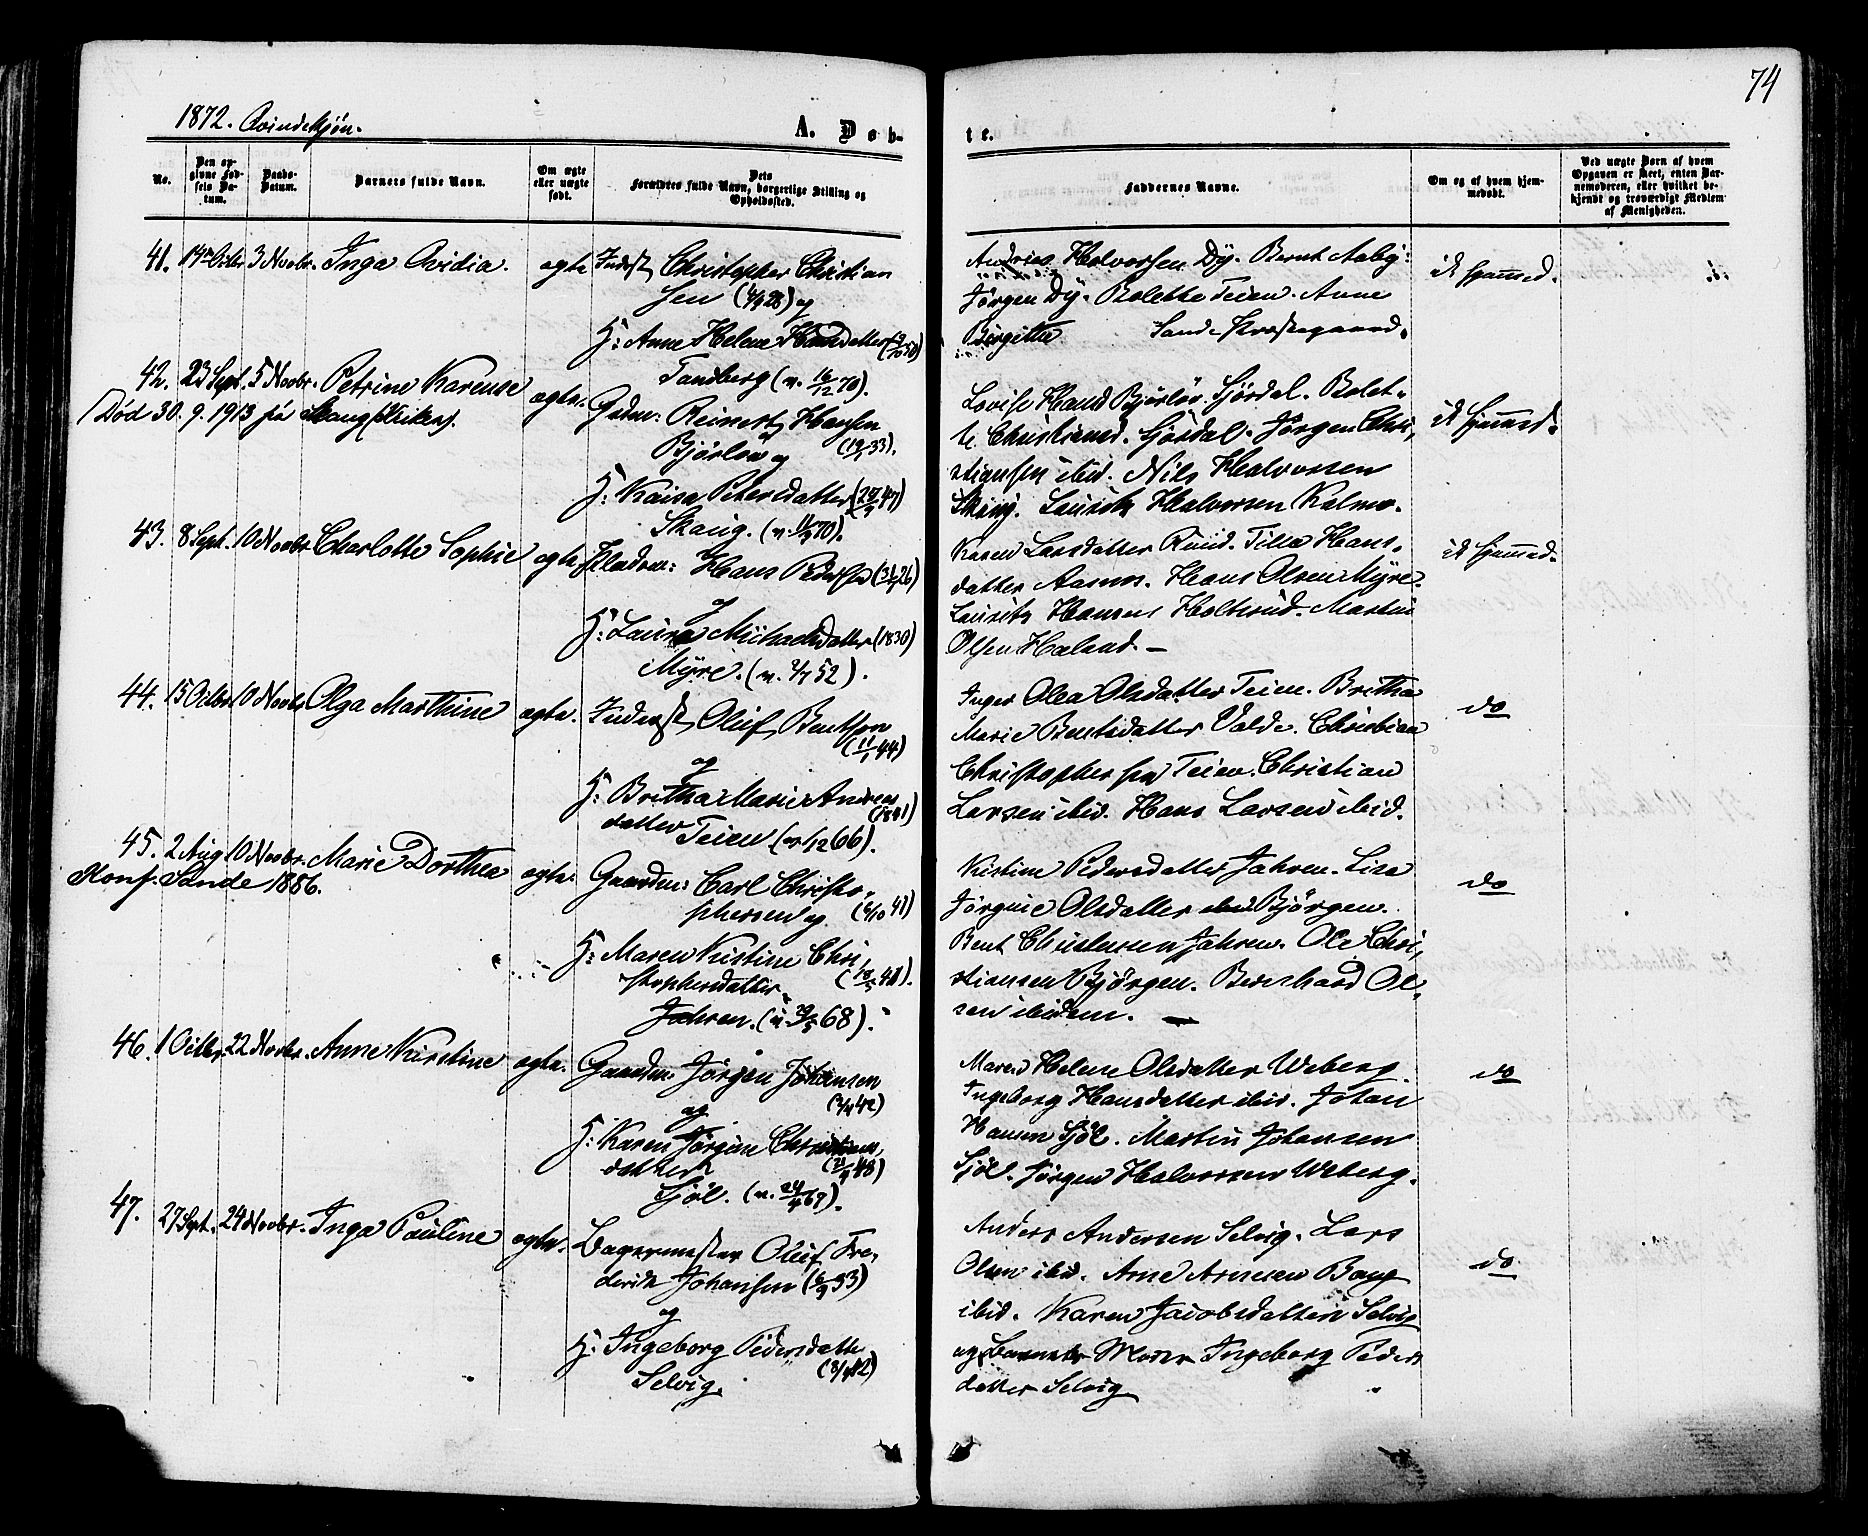 74
1872. Qvindekjøn.
A. Døb-
te.
No.
Den opgivne Fødsels Datum.
Daabs-Datum.
Barnets fulde Navn.
Om ægte eller uægte født.
Dets Forældres fulde Navn, borgerlige Stilling og Opholdssted.
Faddernes Navne.
Om og af hvem hjemmedøbt.
Ved uægte Børn af hvem Opgaven er skeet, enten Barnemoderen, eller hvilket bekjendt og troværdigt Medlem af Menigheden.
41. 14 Octbr 3 Novbr. Inga Ovidia. ægte Inderst Christopher Christian
sen (28) og
H: Anne Helene Hansdatter
Tandberg (v. 16/12 70).
Andreas Halvorsen Dy. Bernt Aaby.
Jørgen Dy. Bolette Teien. Anne
Birgitte Sande Præstegaard.
ik hjemmed.
42. 23 Sept. 5 Novbr. Petrine Karense ægte. Gdm: Reinert Hansen
Død 30. 9. 1913 på Skaug
Bjørløw og (33).
H: Kaisa Petersdatter (47)
Skaug. (v. 70).
Lovise Hansd Bjørløv. Gjordal. Bolet-
te Christiansd. Gjordal. Jørgen Chri-
stiansen ibid. Nils Halvorsen
Skaug. Laurits Halvorsen
ik hjemmed.
43. 8 Sept. 10 Novbr. Charlotte Sophie ægte Hans Peders (26)
og
H: Laura Michaelsdatter (1830)
Myre. (v. 52).
Karen Larsdatter Ruud. Hans-
datter Hans Olsen Myre.
Laurits Hansen Holtsrud. Martin
Olsen Haland. —
ik hjemmed.
44. 15 Octbr 10 Novbr. Olga Marthine ægte. Inderst Oluf Bentsen
(11/1 44)
og
H: Britha Marie Andreas
(1841)
datter Teien (v. 66).
Inger Olea Olsdatter Teien. Britha
Marie Bentsdatter Valde. Christian
Christophersen Teien. Christian
Larsen ibid. Hans Larsen ibid.
do
45. 2 Aug 10 Novbr. Marie Dorthea ægte. Gaardm: Carl Christo-
Konf. Sande 1886.
phersen og (6/10 41)
H: Maren Kirstine Chri-
stophersdatter
Jahren. (v. 68).
Kistine Pedersdatter Jahren. Lise
Jørgine Olsdatter Bjørgen.
Bent Christensen Jahren. Ole Chri-
stiansen Bjørgen. Bernhard Ol-
sen ibidem. —
do
46. 1 Octbr. 22 Novbr. Anne Kirstine ægte. Gaardm: Jørgen Johansen
(42)
og
H: Karen Jørgine Christians-
datter (48)
Sjøl. (v. 24/4 69).
Maren Helene Olsdatter Weberg.
Ingeborg Hansdatter ibid. Johan
Hansen Sjøl. Martin Johansen
Sjøl. Jørgen Halvorsen Weberg.
do
47. 27 Sept. 24 Novbr. Inga Pauline ægte. Bagermester Oluf Fre-
derik Johansen (33)
og
H: Ingeborg Pedersdatter
(42)
Selvig.
Anders Andersen Selvig. Lars
Olsen ibid. Arne Arnesen Bang
ibid. Karen Jacobsdatter Selvig
og Barnets Moder Ingeborg Peders
datter Selvig
do